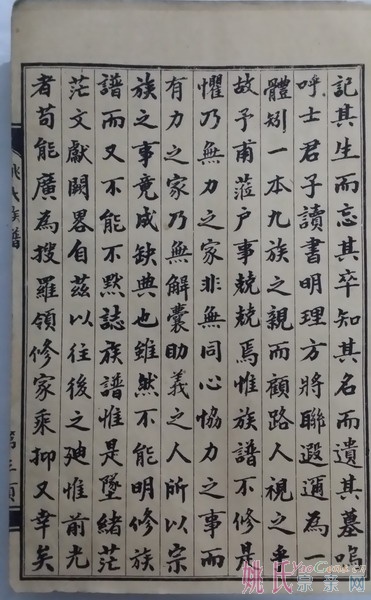 記其生而忘其卒知其名而遺其墓嗚
呼士君子讀書明理方將聯遐邇為一
體矧一本九族之親而顧路人視之乎
故予甫蒞戶事兢兢焉惟族譜不修是
懼乃無力之家非無同心協力之事而
有力之家乃無解囊助義之人所以宗
族之事竟成缺典也雖然不能明修族
譜而又不能不默誌族譜惟是墜緒茫
茫文獻闕畧自茲以往後之廸惟前光
者苟能廣為搜羅領修家乘抑又幸矣
姚氏族譜
第三頁
姚氏宗亲网
YaoGens.cn